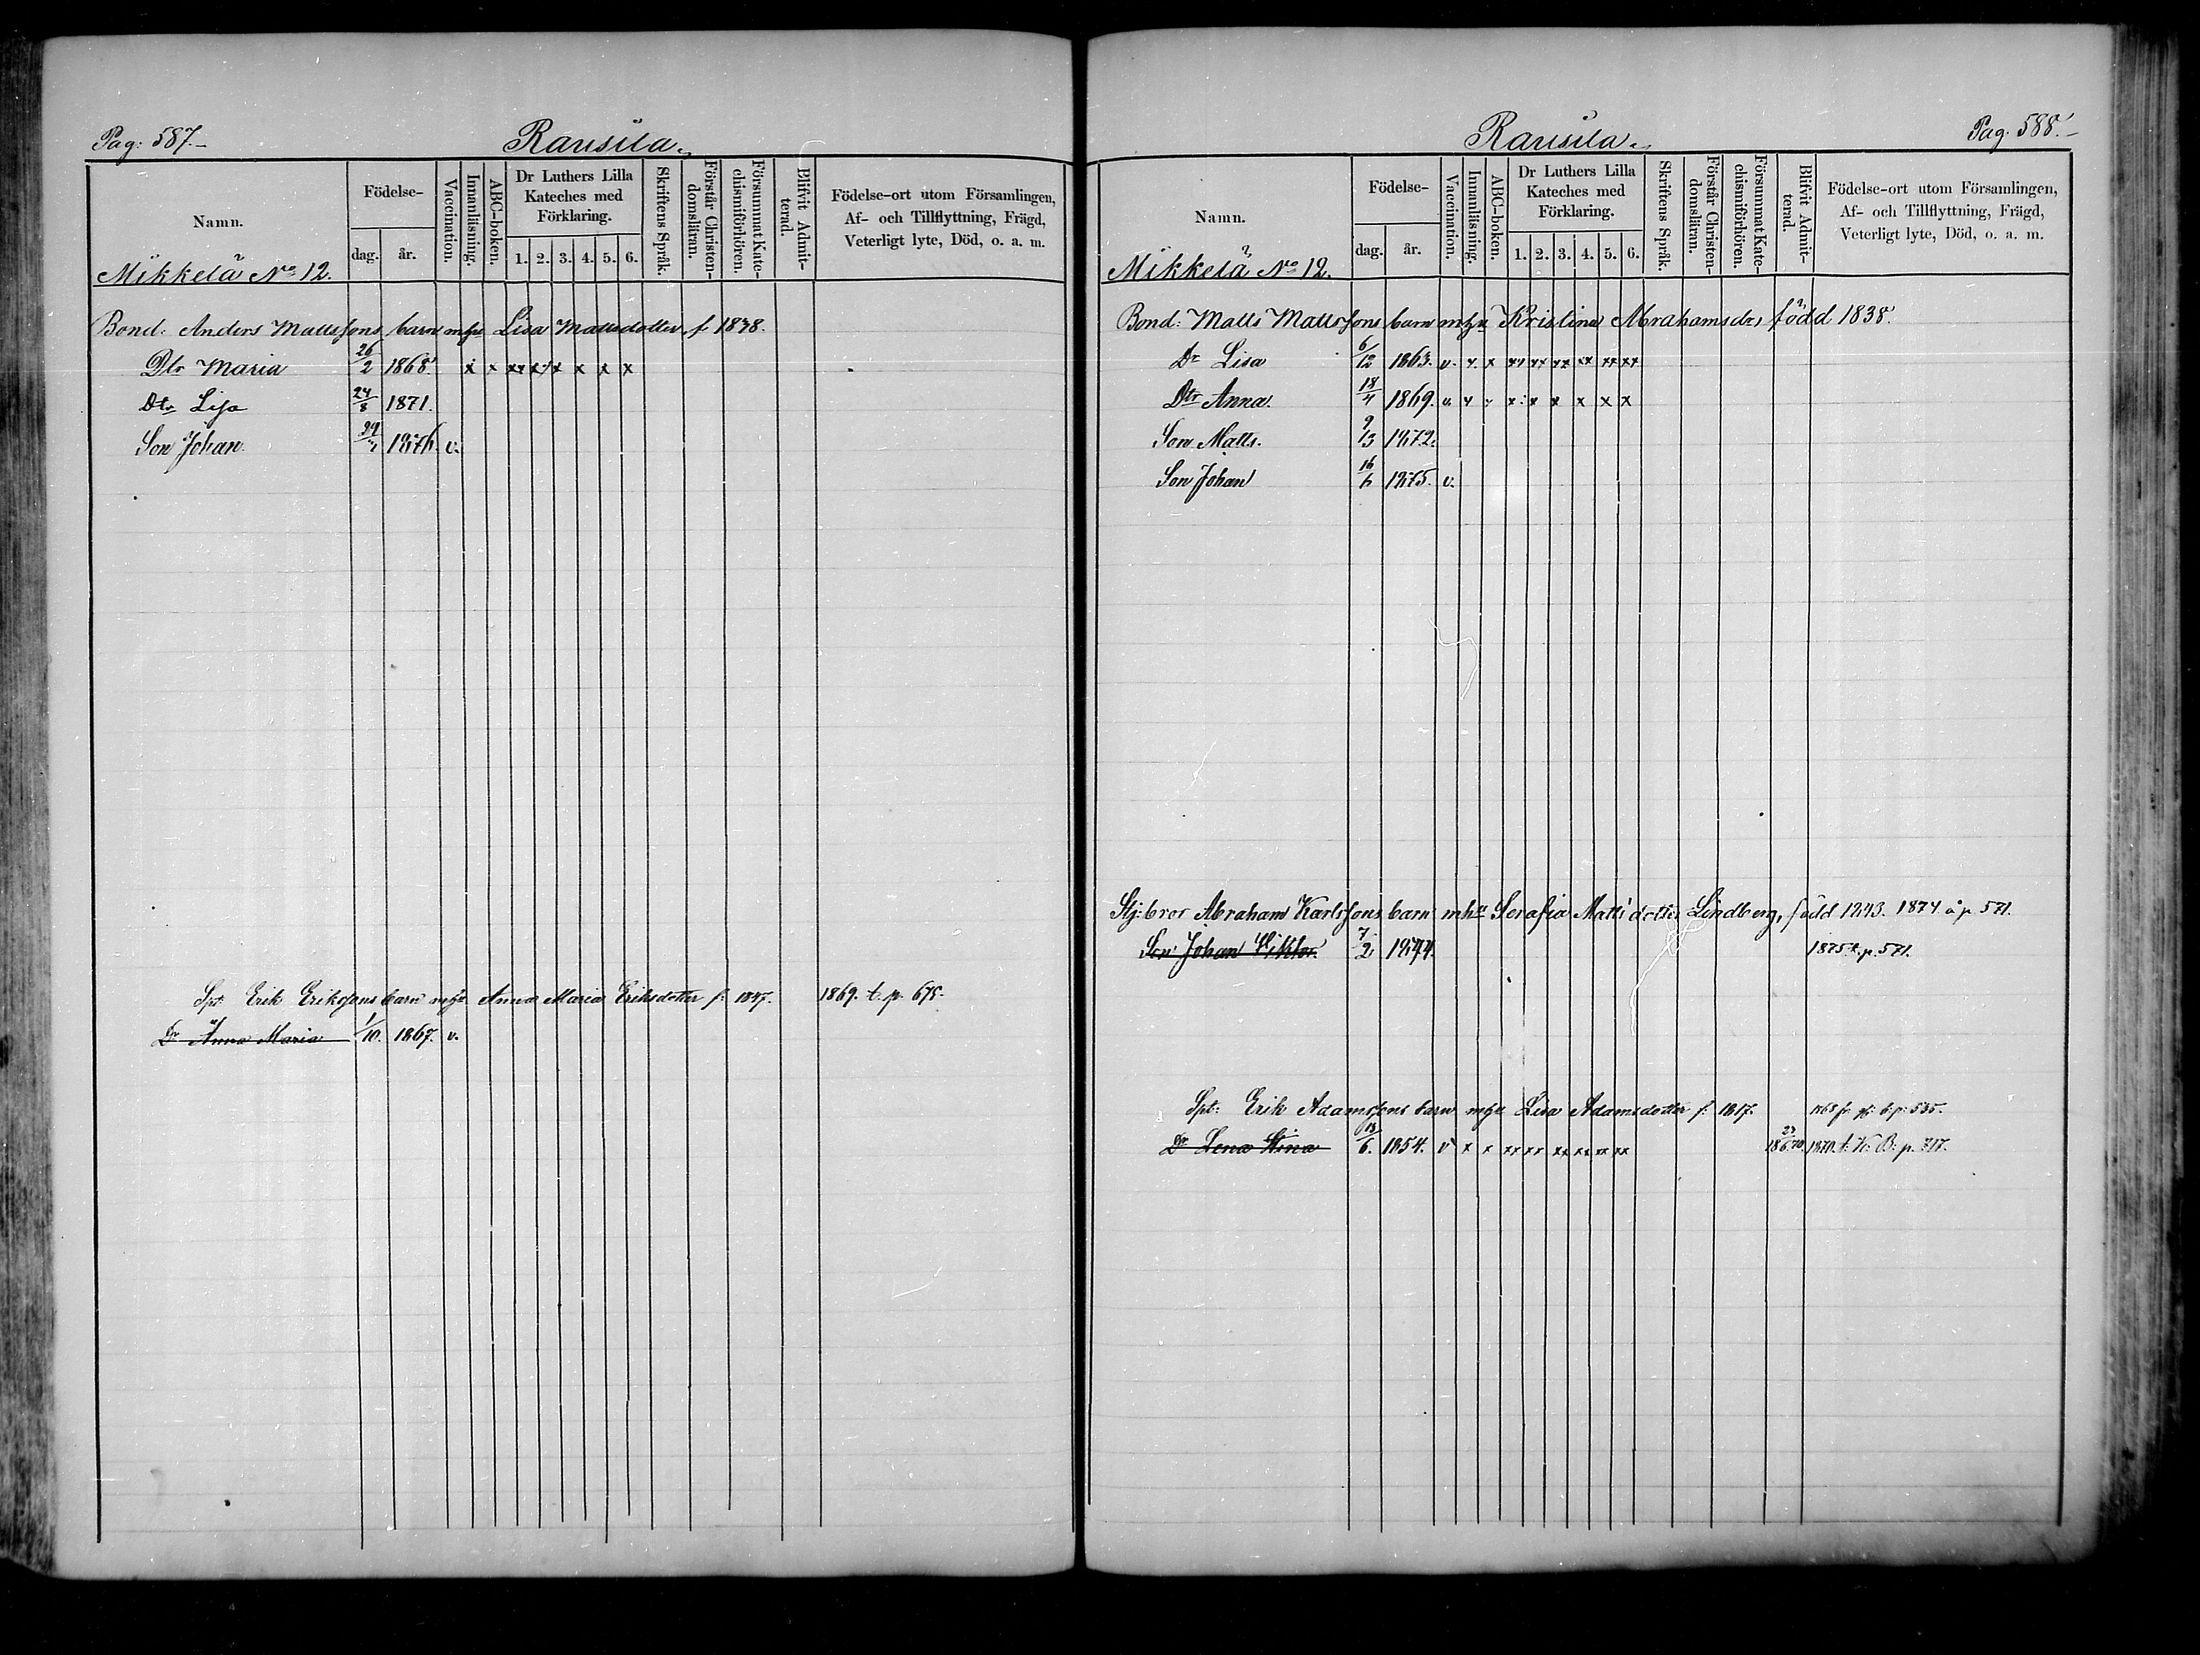 Pag: 587.
Rausila.
Namn.
Födelse-
dag. år.
Vaccination.
Innanläsning.
ABC-boken.
Dr Luthers Lilla Kateches med Förklaring.
1. 2. 3. 4. 5. 6.
Skriftens Språk.
Förstår Christendomsläran.
Försummat Katechismiförhören.
Blifvit Admitterad.
Födelse-ort utom Församlingen,
Af- och Tillflyttning, Frägd,
Veterligt lyte, Död, o. a. m.
Mikkelä No 12.
Bond. Anders Mattssons barn mhu Lisa Mattsdotter f 1838.
Dtr Maria 26/2 1868. x x xx x x x x x
Dtr Lisa 24/8 1871.
Son Johan. 1876. v.
Spt. Erik Erikssons barn mhu Anna Maria Eriksdotter f. 1847. 1869. t. p. 675.
Dr Anna Maria 1/10. 1867. v.
Pag: 588.
Rausila.
Namn.
Födelse-
dag. år.
Vaccination.
Innanläsning.
ABC-boken.
Dr Luthers Lilla Kateches med Förklaring.
1. 2. 3. 4. 5. 6.
Skriftens Språk.
Förstår Christendomsläran.
Försummat Katechismiförhören.
Blifvit Admitterad.
Födelse-ort utom Församlingen,
Af- och Tillflyttning, Frägd,
Veterligt lyte, Död, o. a. m.
Mikkelä No 12.
Bond: Matts Mattssons barn mhu Kristina Abrahamsdr, född 1838.
Dr Lisa 6/12 1863. v. x x xx xx xx xx xx xx
Dtr Anna. 18/4 1869. v x x x x x x x
Son Matts. 9/13 1872.
Son Johan 16/6 1875. v.
Stj:bror Abraham Karlssons barn mhu Serafia Matts dotter Lindberg, född 1843. 1874 å p 571.
Son Johan Viktor. 7/2 1874. 1875 t. p. 571.
Spt: Erik Adamssons barn mhu Lisa Adamsdotter f. 1817. 1868 fr. p. 535.
Dr Lena Stina 13/6. 1854. v x x xx xx xx xx xx xx 1870. t. K. B. p. 717.